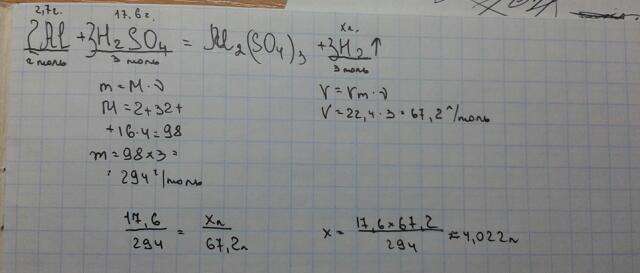 2,7г. 17,6г. xл.
2Al + 3H₂SO₄ = Al₂(SO₄)₃ + 3H₂↑
2 моль 3 моль 3 моль
m = M · ν
M = 2 + 32 +
+ 16 · 4 = 98
m = 98 × 3 =
= 294 г/моль
V = Vm · ν
V = 22,4 · 3 = 67,2 л/моль
17,6/294 = xл/67,2л
x = 17,6 × 67,2/294 ≈ 4,022л